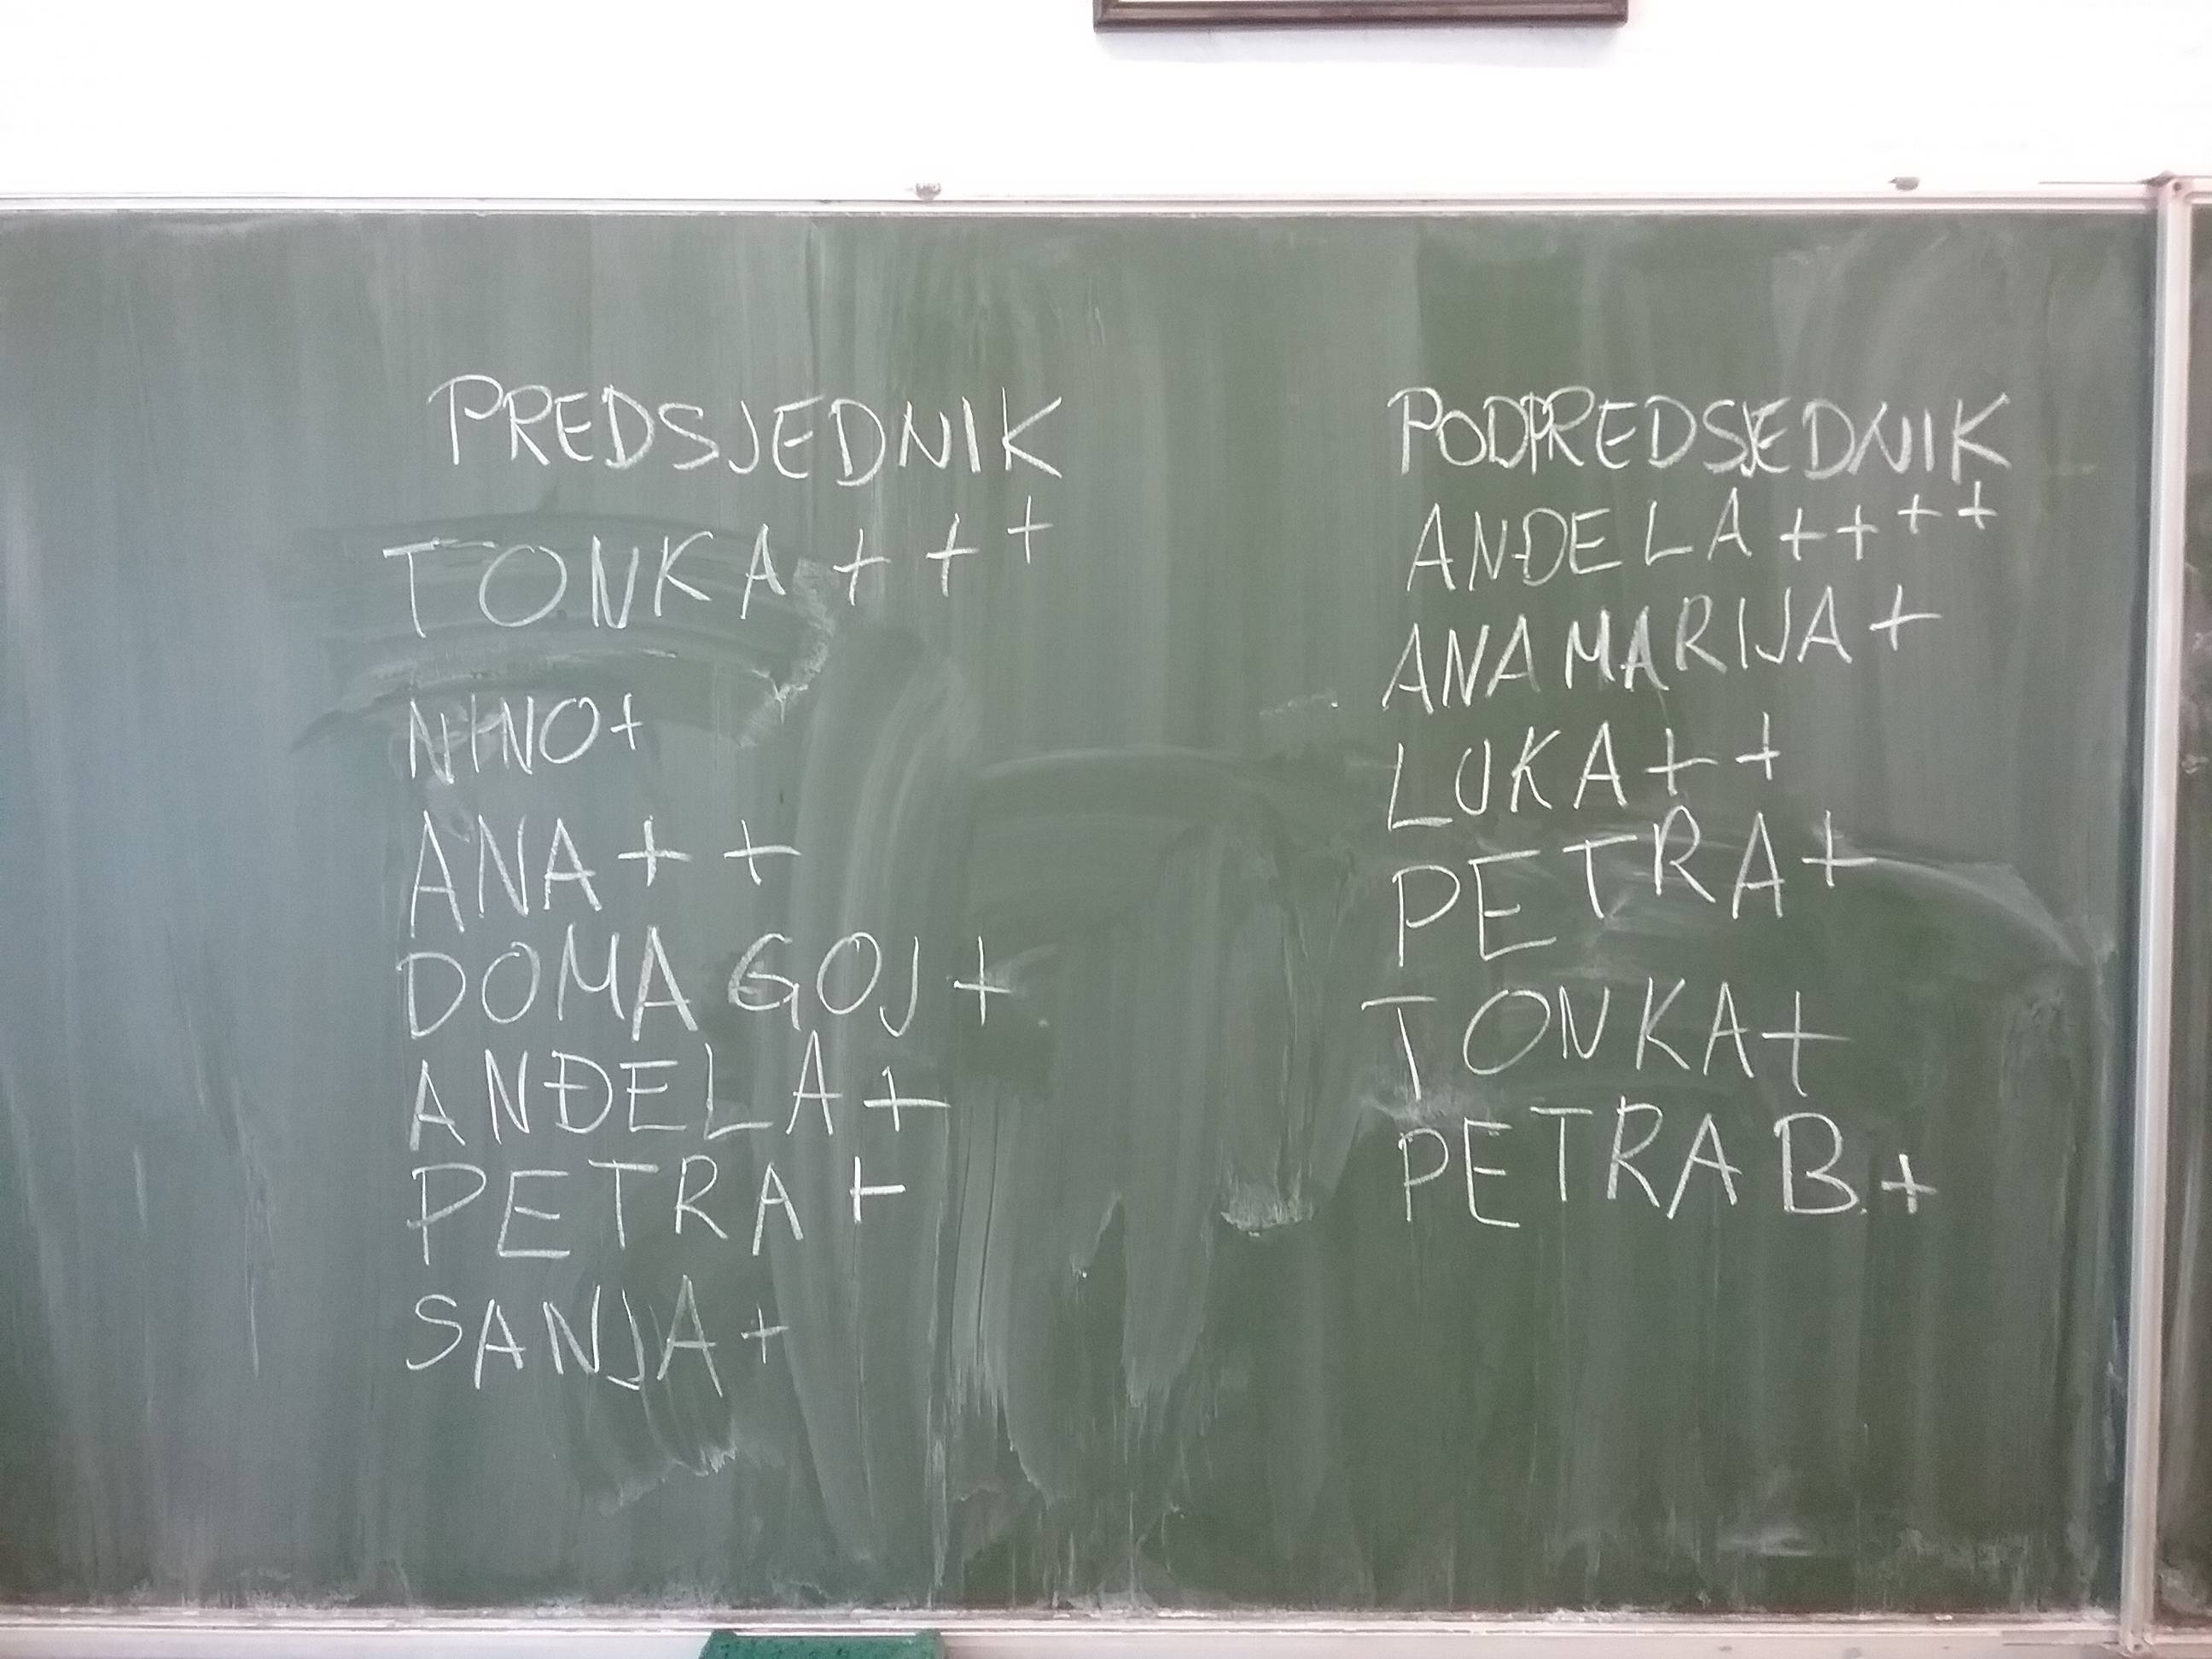 PREDSJEDNIK
TONKA + + +
NINO+
ANA + +
DOMAGOJ +
ANĐELA +
PETRA +
SANJA +
PODPREDSJEDNIK
ANĐELA ++++
ANAMARIJA +
LUKA ++
PETRA +
TONKA +
PETRA B. +